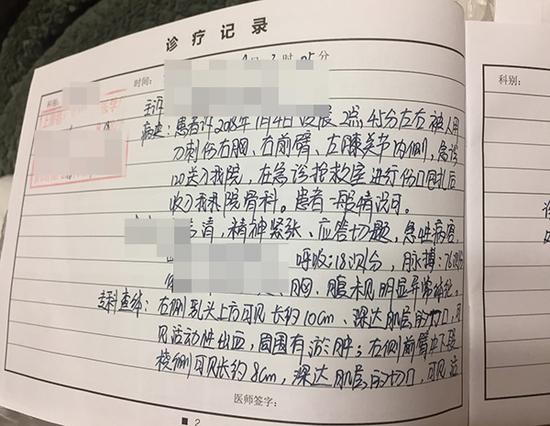 诊疗记录
科别:
时间:
科别:
主诉
病史:患者诉2018年1月4日凌晨2点45分左右被人用
刀刺伤右胸、右前臂、左膝关节内侧,急诊
120送入我院,在急诊抢救室进行伤口包扎后
收入我院骨科。患者一般情况可。
清,精神紧张、应答切题,急性病容,
呼吸:18次/分,脉搏:76次/分
胸、腹未见明显异常
专科查体:右侧乳头上方可见长约10cm、深达肌层的切口,可
见活动性出血,周围有淤肿;右侧前臂中下段
桡侧可见长约8cm,深达肌层的切口,可见活
医师签字:
2